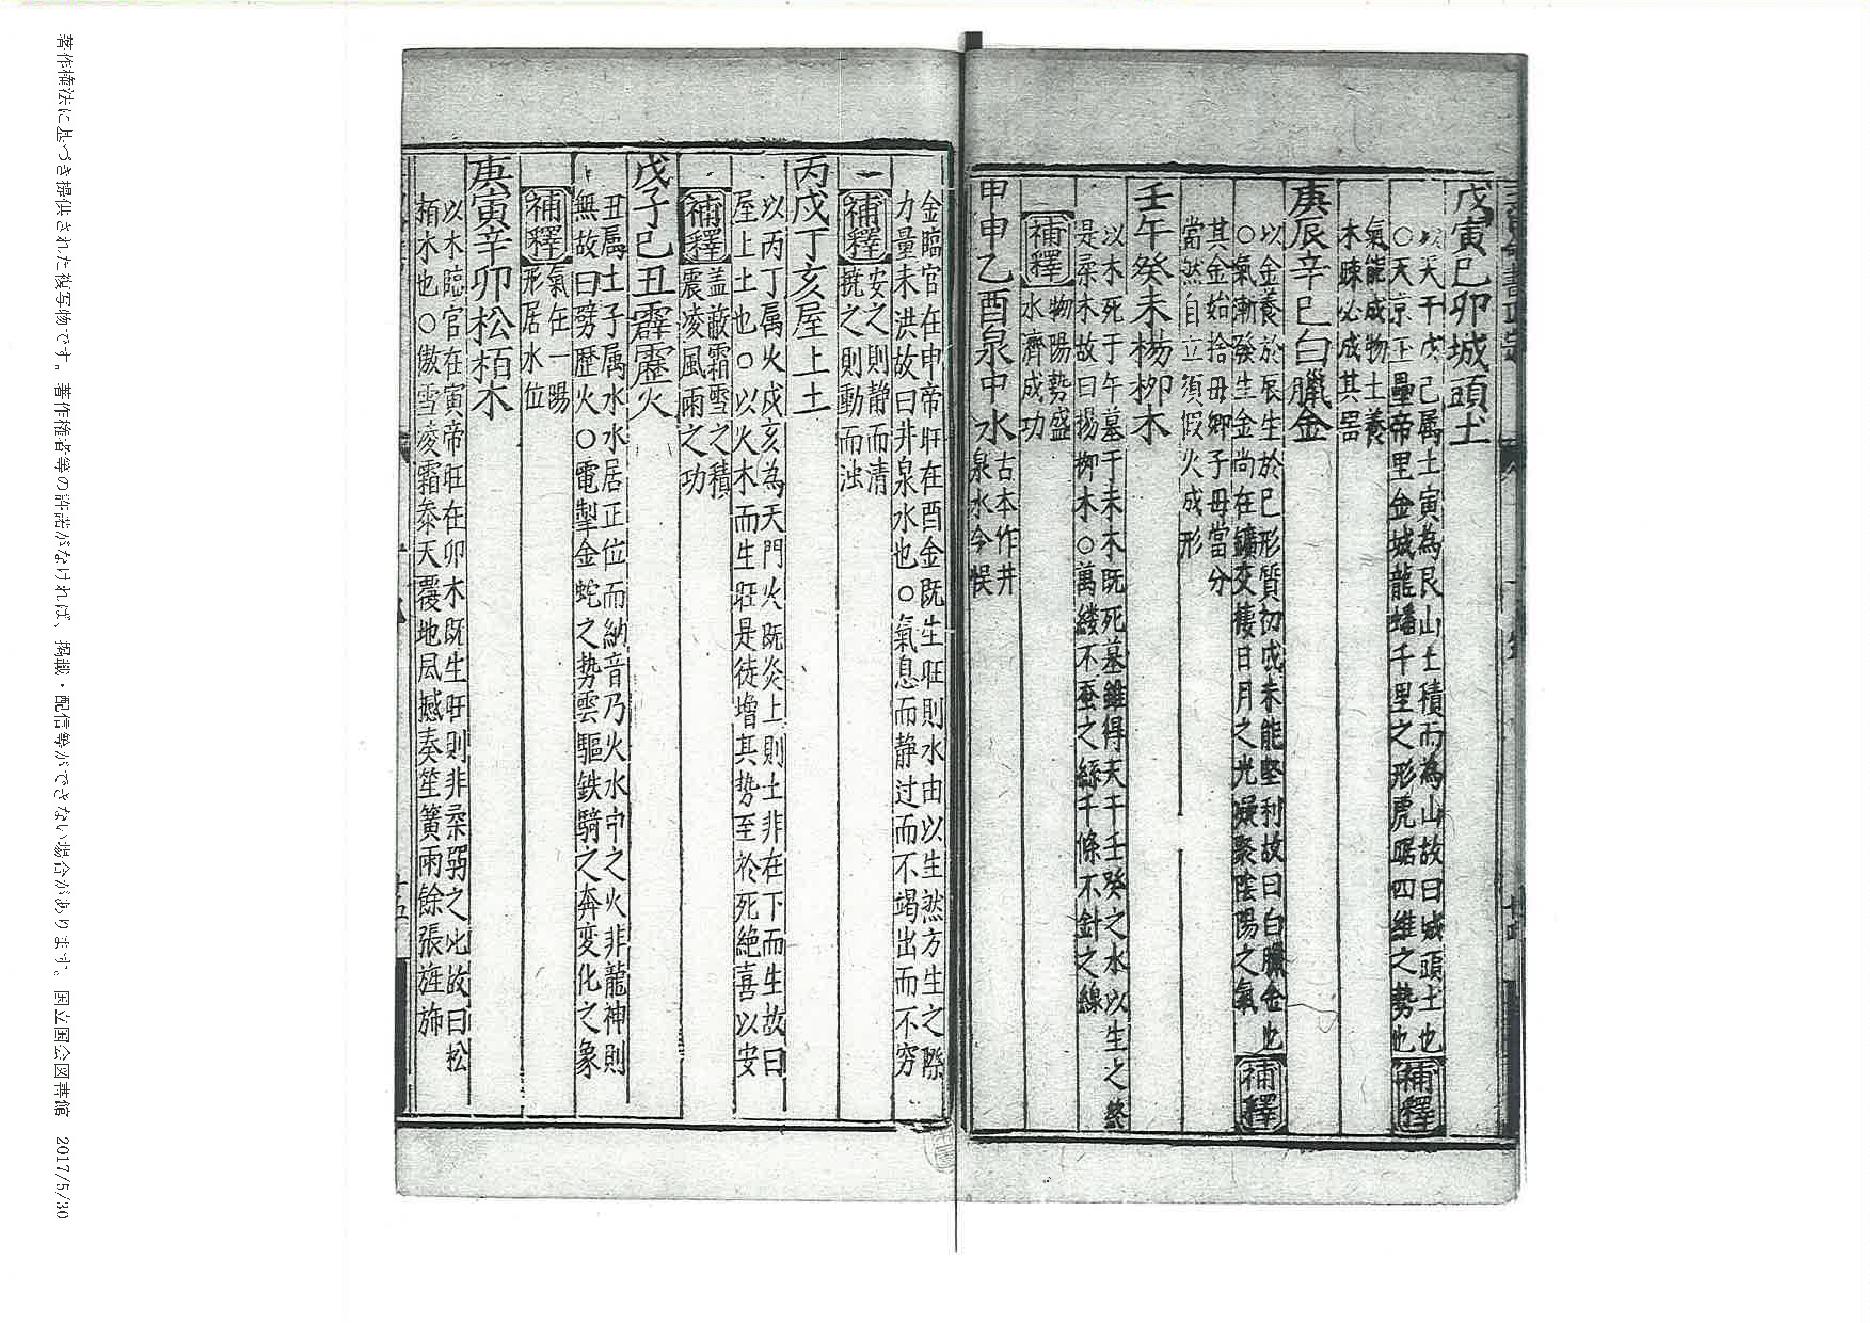 戊寅己卯城頭土
以天干戊己属土寅為艮山土積而為山故曰城頭土也
○天京玉壘帝里金城龍蟠千里之形虎踞四維之勢也
補釋
氣能成物土養
木疎必成其器
庚辰辛巳白鑞金
以金養於辰生於巳形質初成未能堅利故曰白鑞金也
○氣漸發生金尚在鑛交棲日月之光凝聚陰陽之氣
補釋
其金始拾毋卿子母當分
當然自立須假火成形
壬午癸未楊柳木
以木死于午墓于未木既死墓雖得天干壬癸之水以生之終
是柔木故曰楊柳木○萬縷不蚕之絲千條不針之線
補釋
物陽勢盛
水濟成功
甲申乙酉泉中水
古本作井
泉水今悮
金臨官在申帝旺在酉金既生旺則水由以生然方生之際
力量未洪故曰井泉水也○氣息而静过而不竭出而不穷
補釋
安之則静而清
撓之則動而浊
丙戌丁亥屋上土
以丙丁属火戌亥為天門火既炎上則土非在下而生故曰
屋上土也○以火木而生旺是徒增其势至於死絶喜以安
補釋
盖蔽霜雪之積
震凌風雨之功
戊子己丑霹靂火
丑属土子属水水居正位而納音乃火水中之火非龍神則
無故曰劈歷火○電掣金蛇之势雲驅鉄騎之奔変化之象
補釋
氣在一陽
形居水位
庚寅辛卯松栢木
以木臨官在寅帝旺在卯木既生旺則非柔弱之比故曰松
栢木也○傲雪凌霜叅天覆地風撼奏笙簧雨餘張旌旆
著作権法に基づき提供された複写物です。著作権者等の許諾がなければ、掲載・配信等ができない場合があります。国立国会図書館 2017/5/30